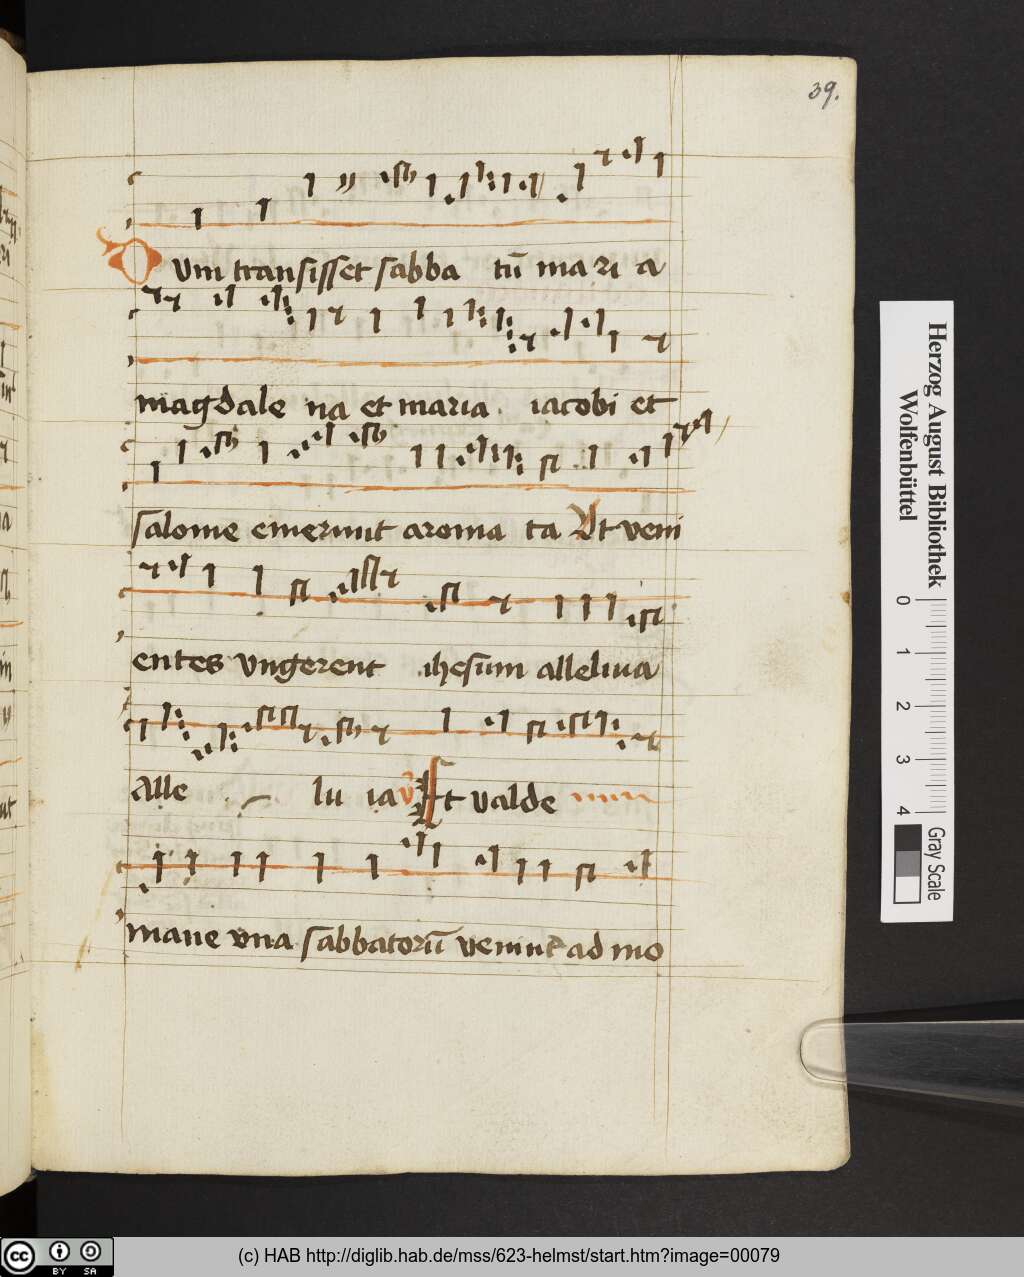 39.
Dum transisset sabba tū ma ri a
magdale na et maria iacobi et
salome emerunt aroma ta Vt veni
entes vngerent ihesum alleluua
Alle lu ia v̄ Et valde
mane vna sabbatorū veniunt ad mo
Herzog August Bibliothek
Wolfenbüttel
0 1 2 3 4
Gray Scale
cc BY SA
(c) HAB http://diglib.hab.de/mss/623-helmst/start.htm?image=00079